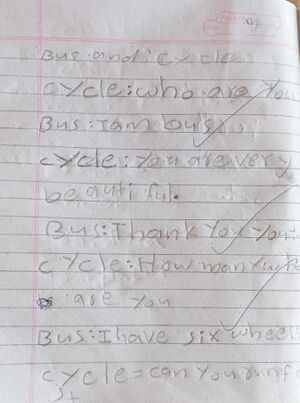 Bus and cycle
cycle: who are you
Bus: I am bus
cycle: you are very
beautiful.
Bus: Thank you you
cycle: How many
are you
Bus: I have six wheels
cycle = can you